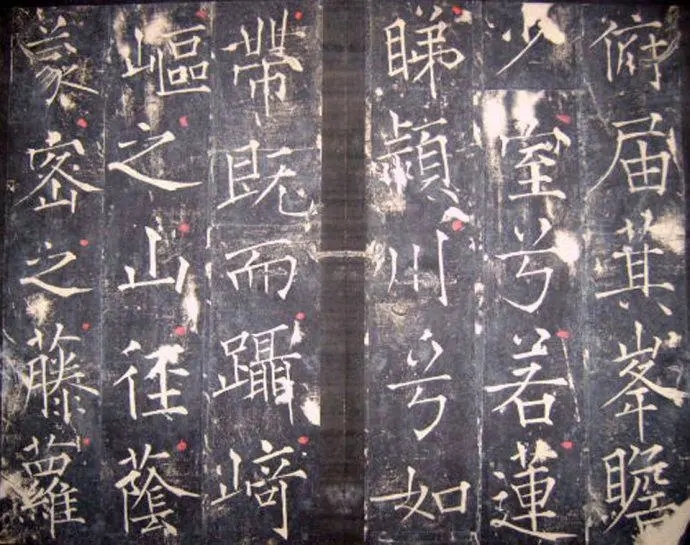 俯届萁峯瞻
少室兮若蓮
睇潁川兮如
帶既而躡﨑
嶇之山徑蔭
蒙密之藤蘿